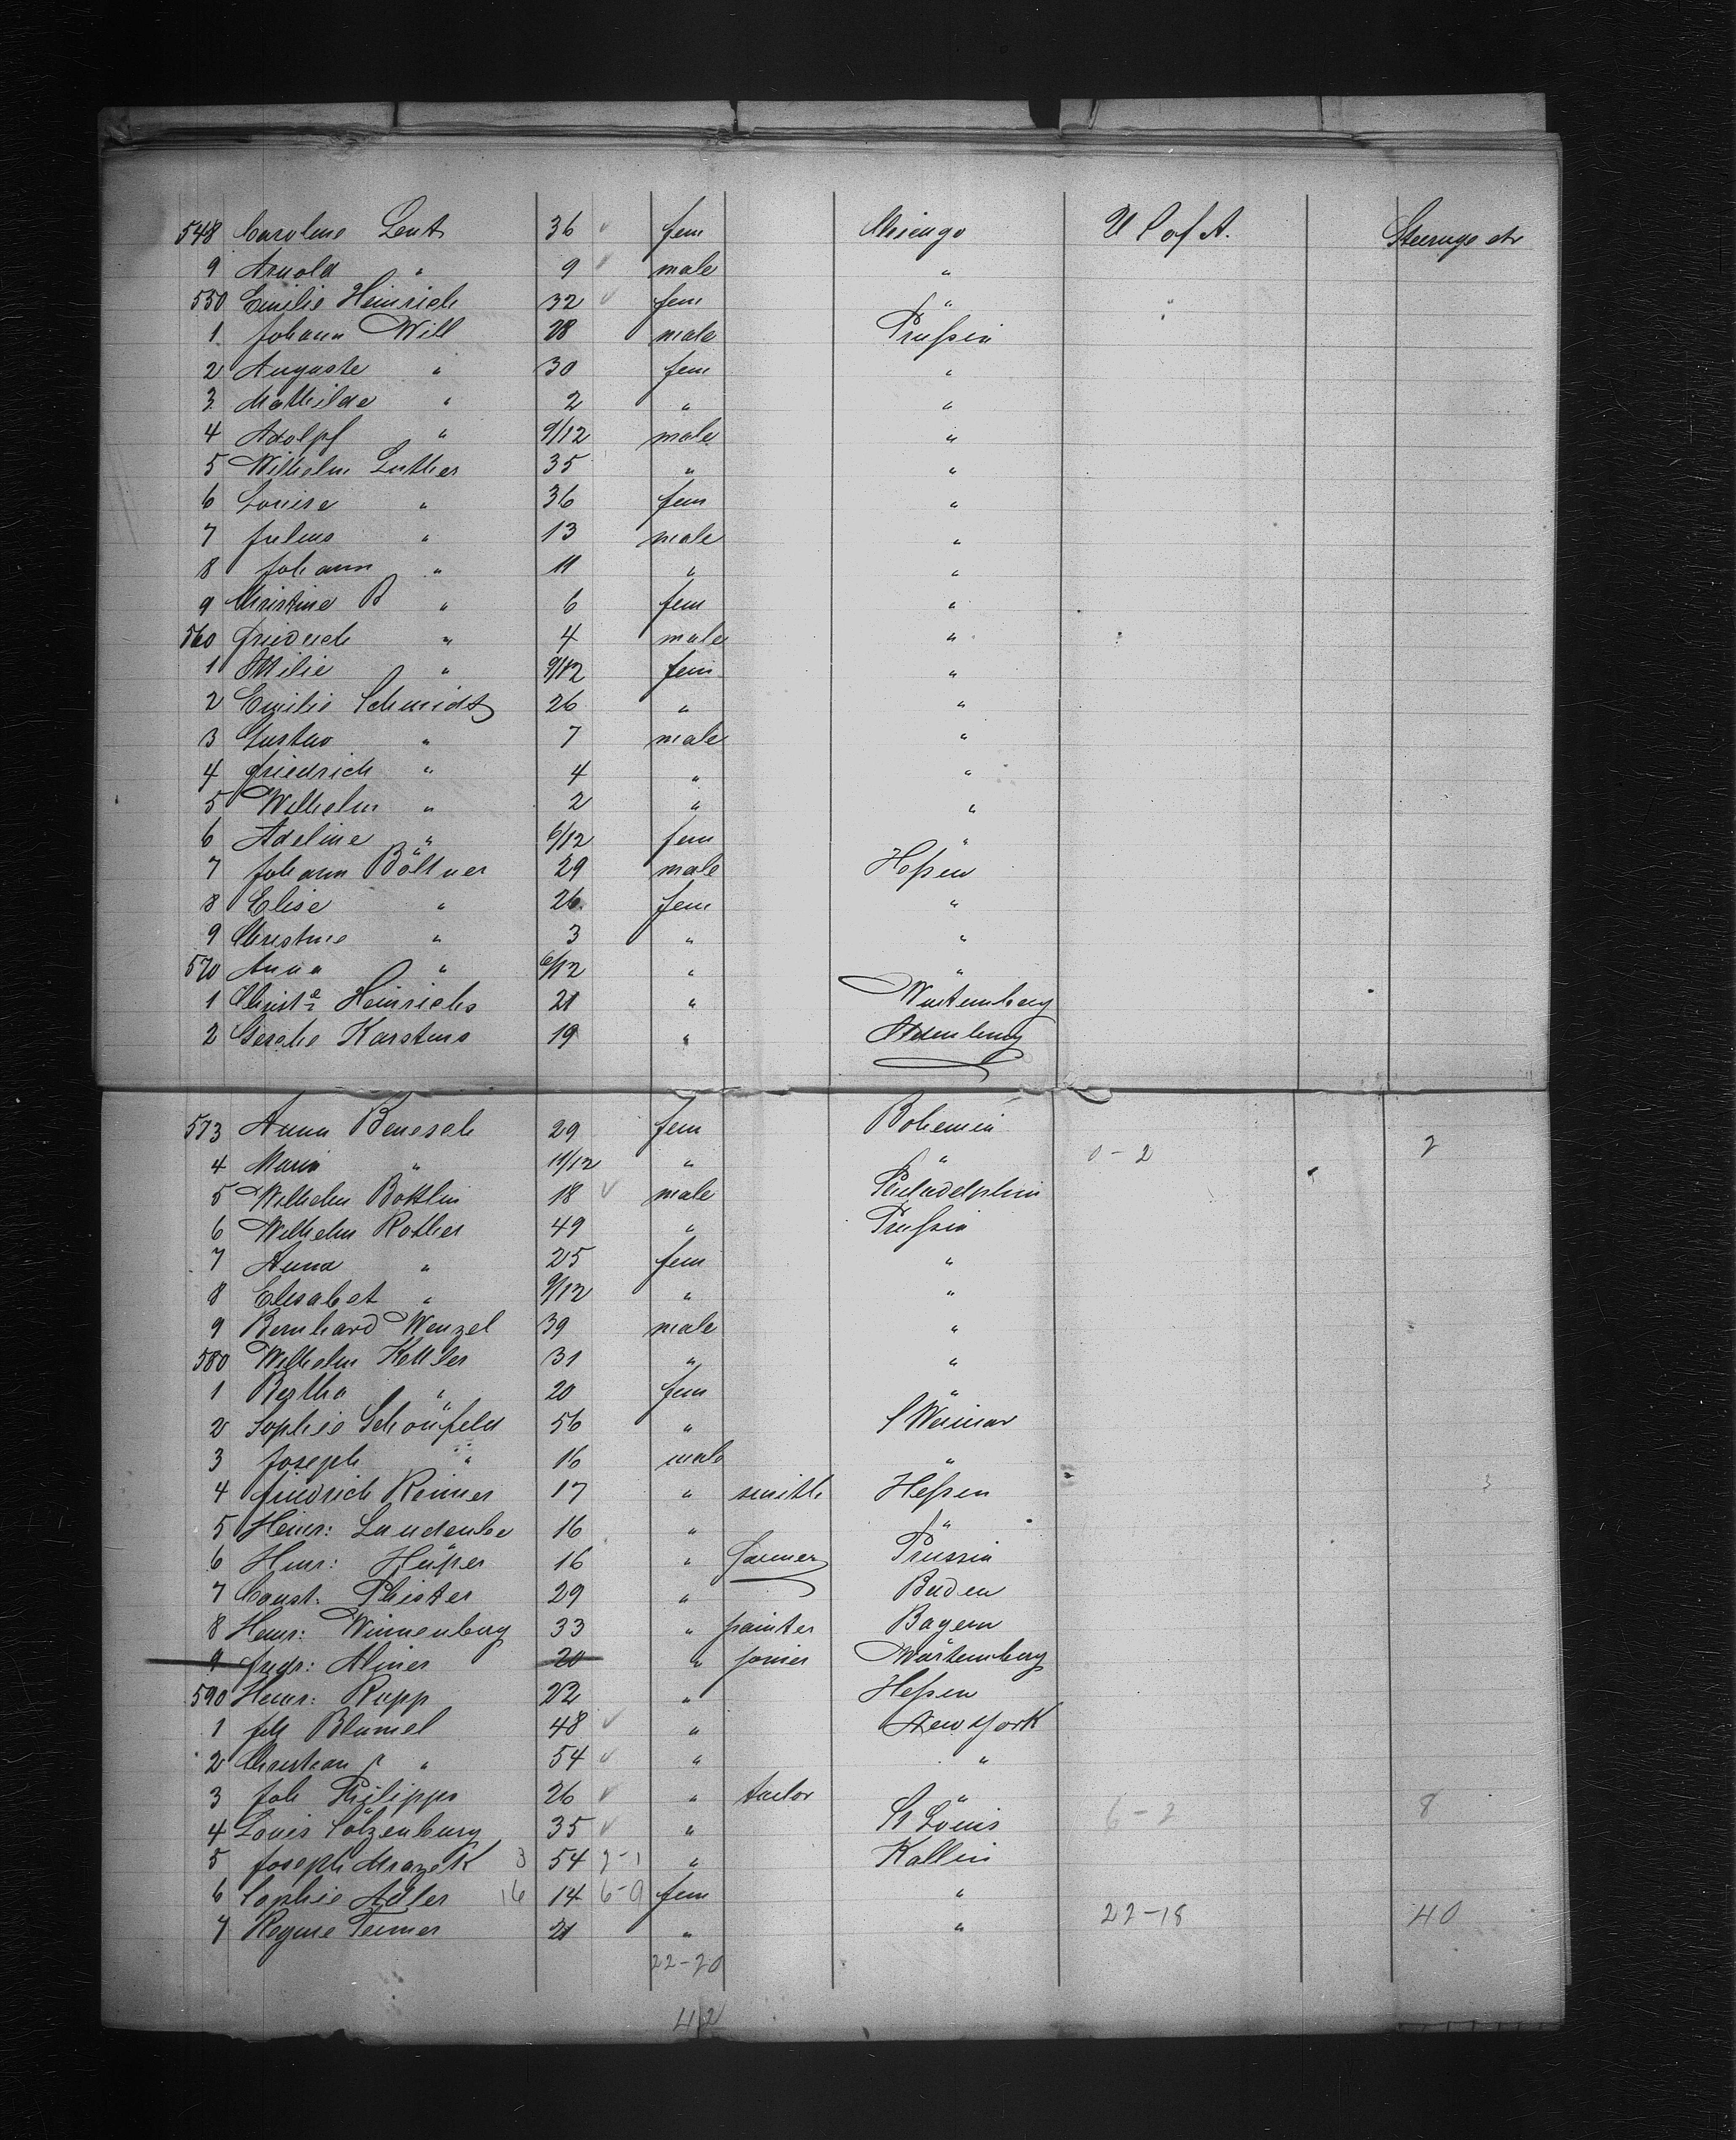 548 Caroline Lent 36 fem Chicago U S of A. Steerage etr
9 Arnold " 9 male "
550 Emilie Heinrich 32 fem "
1 Johann Will 28 male Prussia
2 Auguste " 30 fem "
3 Mathilde " 2 " "
4 Adolpf " 9/12 male "
5 Wilhelm Luther 35 " "
6 Louise " 36 fem "
7 Julius " 13 male "
8 Johann " 11 " "
9 Christine B " 6 fem "
560 Friedrich " 4 male "
1 Ottilie " 9/12 fem "
2 Emilie Schmidt 26 " "
3 Gustav " 7 male "
4 Friedrich " 4 " "
5 Wilhelm " 2 " "
6 Adeline " 6/12 fem "
7 Johann Böltner 29 male Hessen
8 Elise " 26 fem "
9 Christine " 3 " "
570 Anna " 6/12 " "
1 Christe Heinrichs 21 " Würtemberg
2 Gesche Karstens 19 " Oldenburg
573 Anna Benesch 29 fem Bohemia
4 Maria " 11/12 " " 0-2 2
5 Wilhelm Böttlin 18 male Philadelphia
6 Wilhelm Rother 49 " Prussia
7 Anna " 25 fem "
8 Elisabet " 9/12 " "
9 Bernhard Wenzel 39 male "
580 Wilhelm Kettler 31 " "
1 Bertha " 20 fem "
2 Sophie Schönfeld 56 " S Weimar
3 Joseph " 16 male "
4 Friedrich Reimer 17 " smith Hessen 3
5 Heinr: 16 " "
6 Heinr: Hüper 16 " farmer Prussia
7 Const. Phister 29 " Baden
8 Heinr: Winnenberg 33 " painter Bayern
9 Fredr: Aliner 20 " joiner Würtemberg
590 Heinr: Rupp 22 " Hessen
1 Joh Blümel 48 " New York
2 Christian " 54 " "
3 Joh Philipps 26 " tailor "
4 Louis Sölzenburg 35 " St Louis 6-2 8
5 Joseph Mrazek 3 54 2-1 " Kollin
6 Sophie Adler 16 14 6-9 fem "
7 Regine Teimer 21 " " 22-18 40
22-20
42